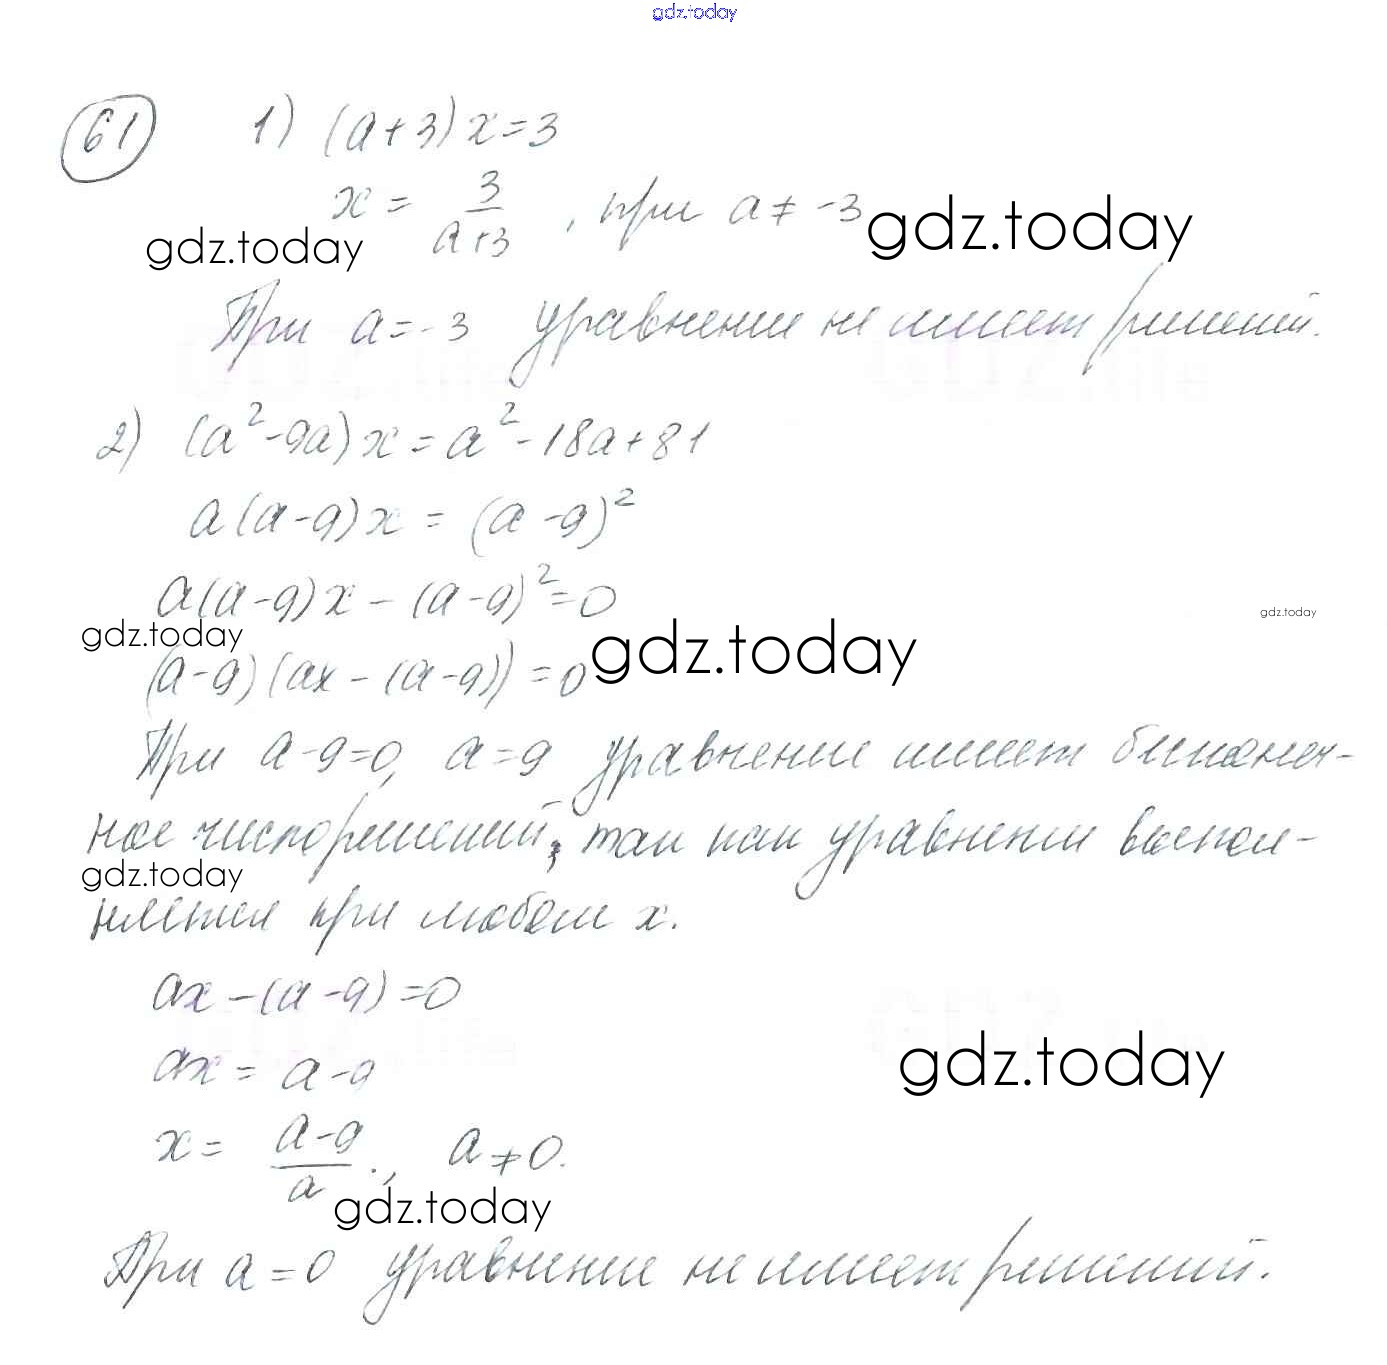 gdz.today
61 1) (a+3)x=3
x = 3/(a+3), при a ≠ -3 gdz.today
gdz.today
При a=-3 уравнение не имеет решений.
2) (a²-9a)x = a²-18a+81
a(a-9)x = (a-9)²
a(a-9)x - (a-9)² = 0
gdz.today
gdz.today gdz.today
(a-9)(ax-(a-9)) = 0
При a-9=0, a=9 уравнение имеет бесконеч-
ное число решений, так как уравнение выпол-
gdz.today
няется при любом x.
ax-(a-9)=0
ax = a-9
gdz.today
x = (a-9)/a., a ≠ 0.
gdz.today
При a=0 уравнение не имеет решений.